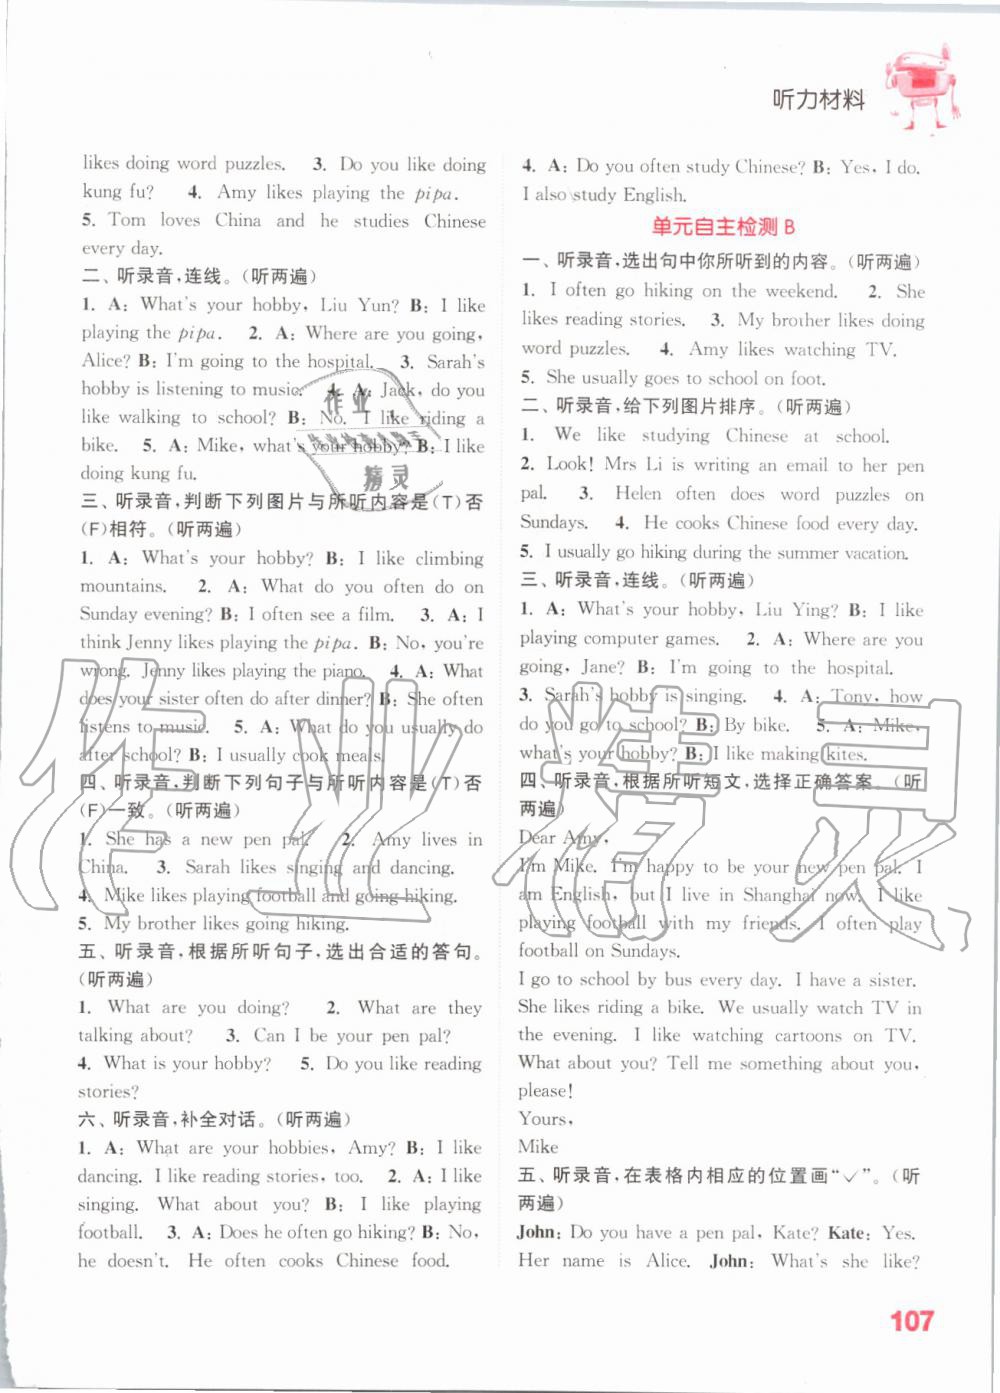 听力材料
likes doing word puzzles. 3. Do you like doing
kung fu? 4. Amy likes playing the pipa.
5. Tom loves China and he studies Chinese
every day.
二、听录音,连线。(听两遍)
1. A: What's your hobby, Liu Yun? B: I like
playing the pipa. 2. A: Where are you going,
Alice? B: I'm going to the hospital. 3. Sarah's
hobby is listening to music. 4. A: Jack, do you
like walking to school? B: No. I like riding a
bike. 5. A: Mike, what's your hobby? B: I like
doing kung fu.
三、听录音,判断下列图片与所听内容是(T)否
(F)相符。(听两遍)
1. A: What's your hobby? B: I like climbing
mountains. 2. A: What do you often do on
Sunday evening? B: I often see a film. 3. A: I
think Jenny likes playing the pipa. B: No, you're
wrong. Jenny likes playing the piano. 4. A: What
does your sister often do after dinner? B: She often
listens to music. 5. A: What do you usually do
after school? B: I usually cook meals.
四、听录音,判断下列句子与所听内容是(T)否
(F)一致。(听两遍)
1. She has a new pen pal. 2. Amy lives in
China. 3. Sarah likes singing and dancing.
4. Mike likes playing football and going hiking.
5. My brother likes going hiking.
五、听录音,根据所听句子,选出合适的答句。
(听两遍)
1. What are you doing? 2. What are they
talking about? 3. Can I be your pen pal?
4. What is your hobby? 5. Do you like reading
stories?
六、听录音,补全对话。(听两遍)
1. A: What are your hobbies, Amy? B: I like
dancing. I like reading stories, too. 2. A: I like
singing. What about you? B: I like playing
football. 3. A: Does he often go hiking? B: No,
he doesn't. He often cooks Chinese food.
4. A: Do you often study Chinese? B: Yes, I do.
I also study English.
单元自主检测 B
一、听录音,选出句中你所听到的内容。(听两遍)
1. I often go hiking on the weekend. 2. She
likes reading stories. 3. My brother likes doing
word puzzles. 4. Amy likes watching TV.
5. She usually goes to school on foot.
二、听录音,给下列图片排序。(听两遍)
1. We like studying Chinese at school.
2. Look! Mrs Li is writing an email to her pen
pal. 3. Helen often does word puzzles on
Sundays. 4. He cooks Chinese food every day.
5. I usually go hiking during the summer vacation.
三、听录音,连线。(听两遍)
1. A: What's your hobby, Liu Ying? B: I like
playing computer games. 2. A: Where are you
going, Jane? B: I'm going to the hospital.
3. Sarah's hobby is singing. 4. A: Tony, how
do you go to school? B: By bike. 5. A: Mike,
what's your hobby? B: I like making kites.
四、听录音,根据所听短文,选择正确答案。(听
两遍)
Dear Amy,
I'm Mike. I'm happy to be your new pen pal. I
am English, but I live in Shanghai now. I like
playing football with my friends. I often play
football on Sundays.
I go to school by bus every day. I have a sister.
She likes riding a bike. We usually watch TV in
the evening. I like watching cartoons on TV.
What about you? Tell me something about you,
please!
Yours,
Mike
五、听录音,在表格内相应的位置画“✓”。(听
两遍)
John: Do you have a pen pal, Kate? Kate: Yes.
Her name is Alice. John: What's she like?
107
作业精灵
作业
精灵